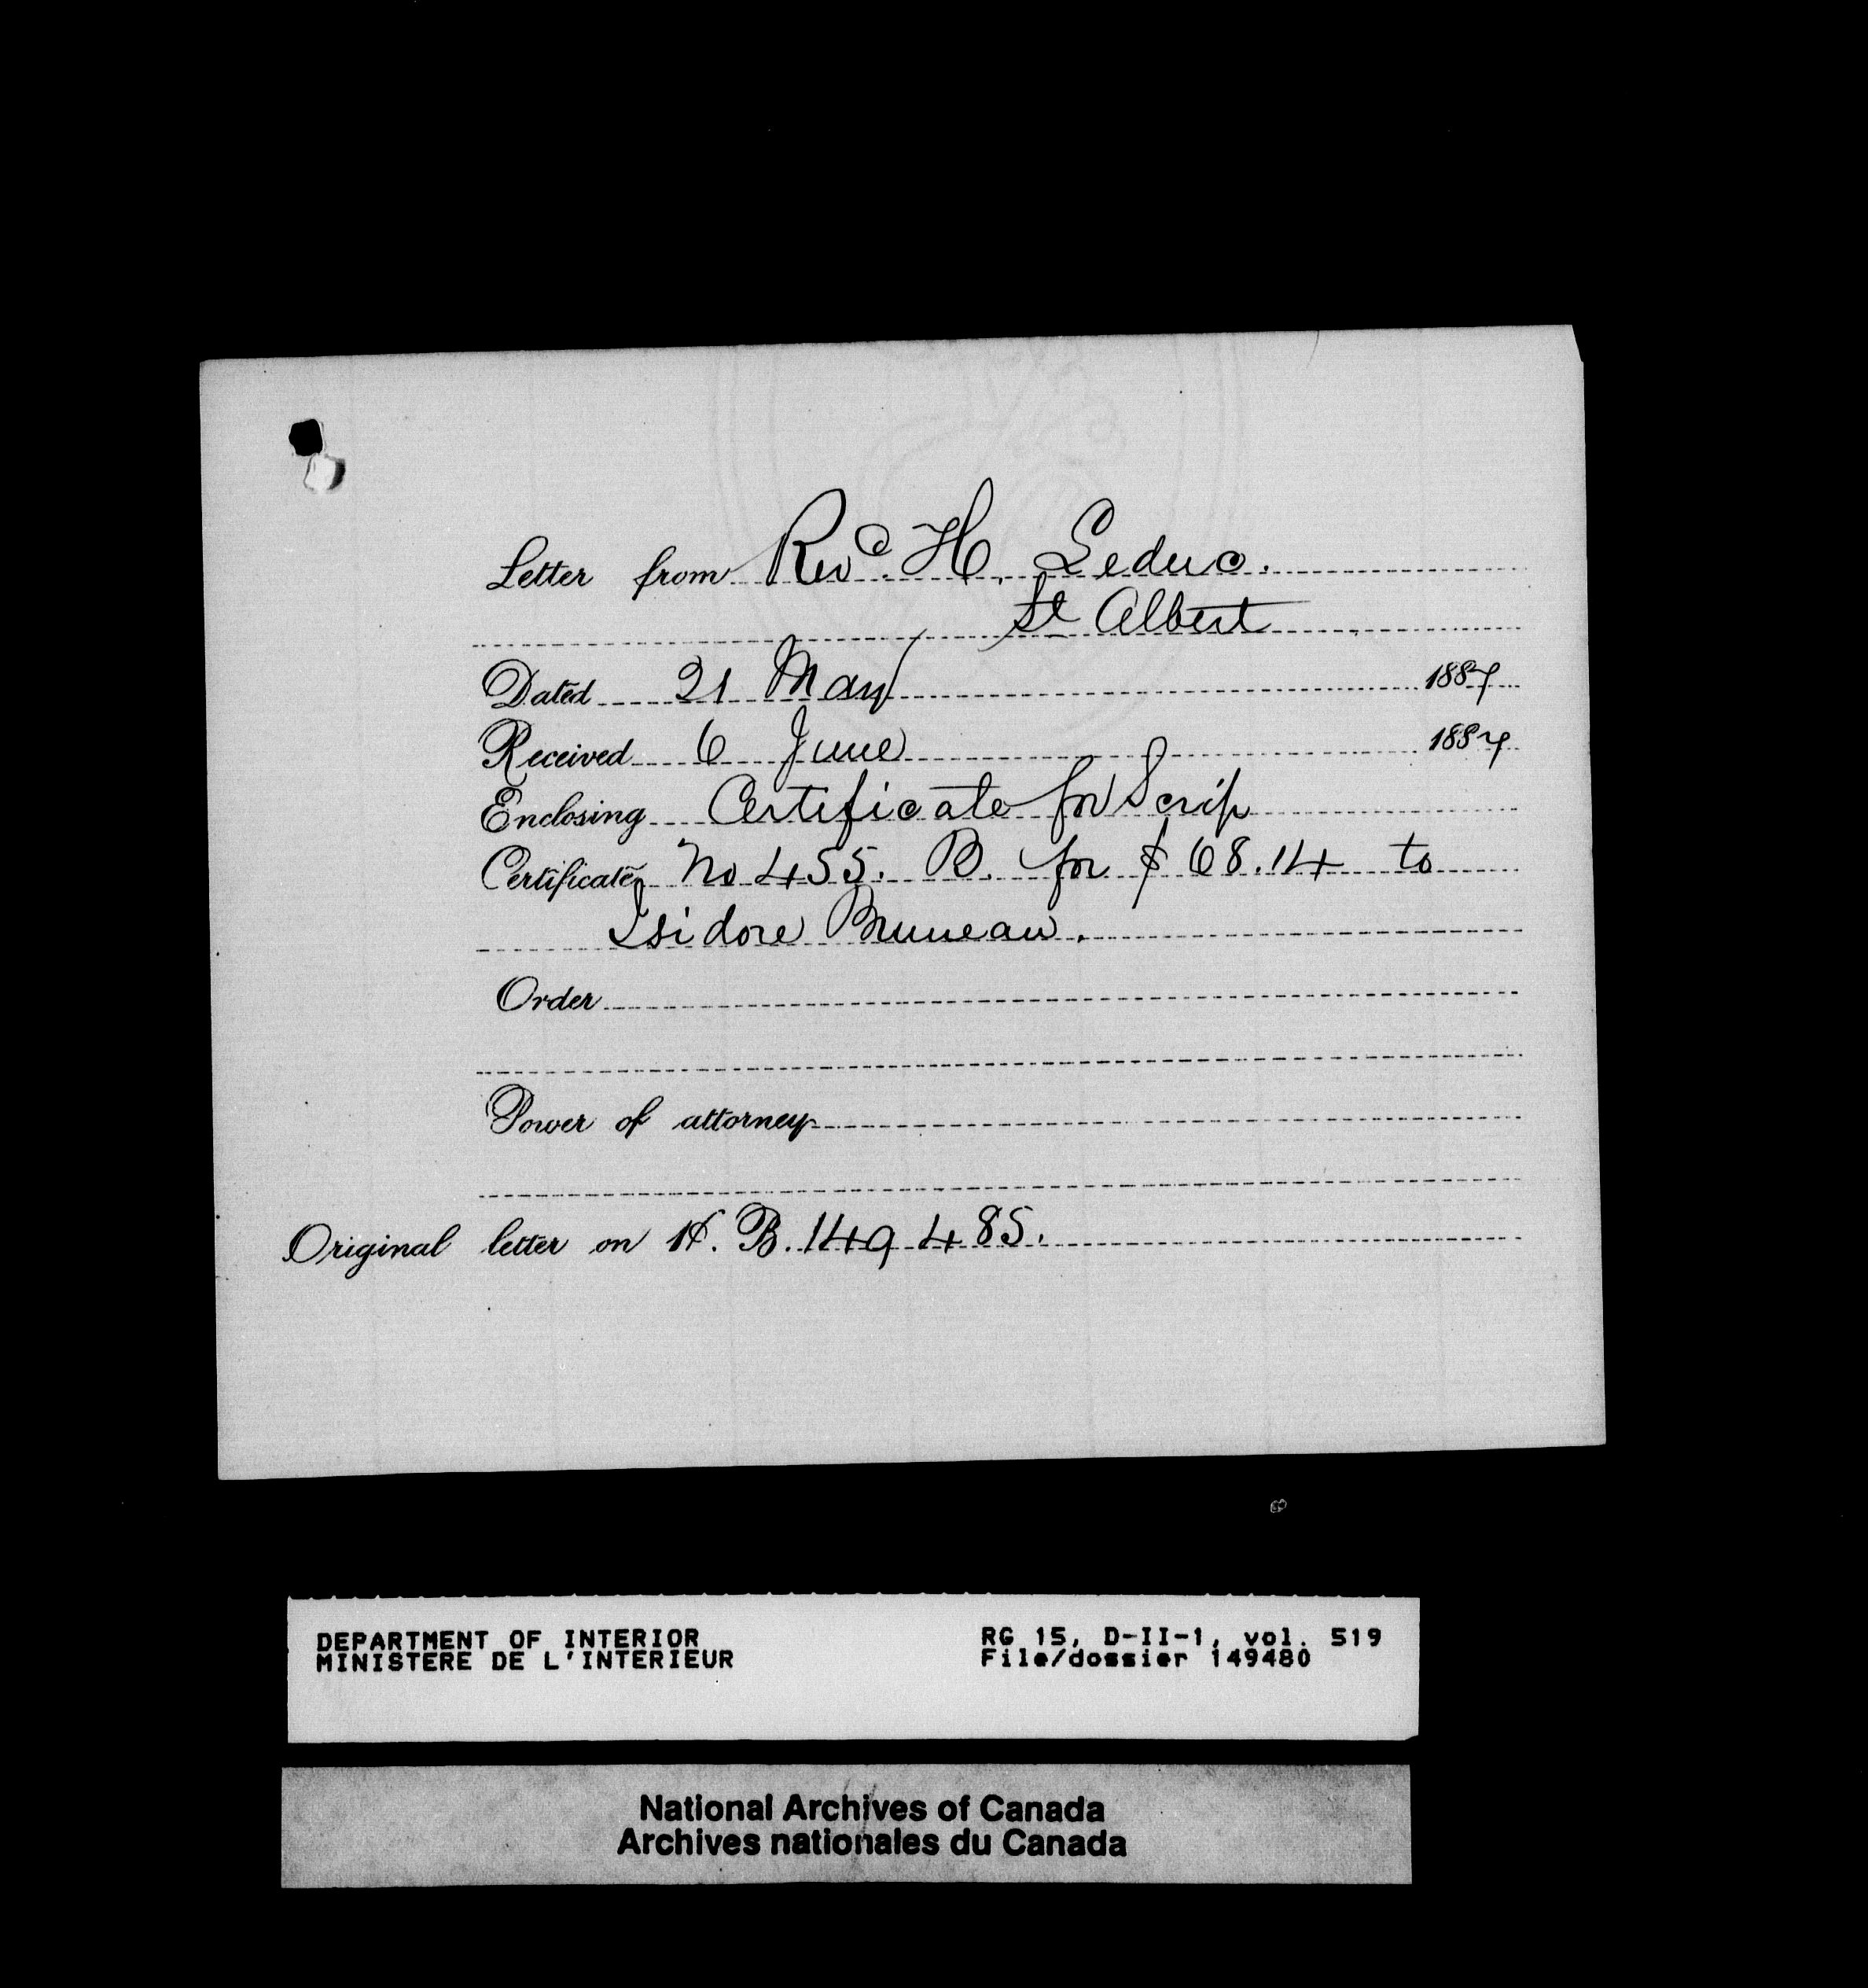 Letter from Revd. H. Leduc.
St Albert
Dated 21 May 1887
Received 6 June 1887
Enclosing Certificate for Scrip
Certificate No 455. B. for $ 68.14 to
Isidore Bruneau.
Order
Power of attorney
Original letter on H. B. 149485.
DEPARTMENT OF INTERIOR RG 15, D-II-1, vol. 519
MINISTERE DE L'INTERIEUR File/dossier 149480
National Archives of Canada
Archives nationales du Canada